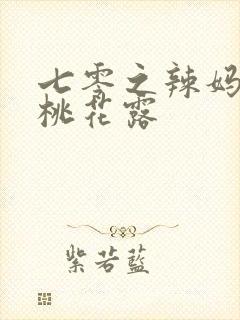 七零之辣妈
桃花露
紫若蓝